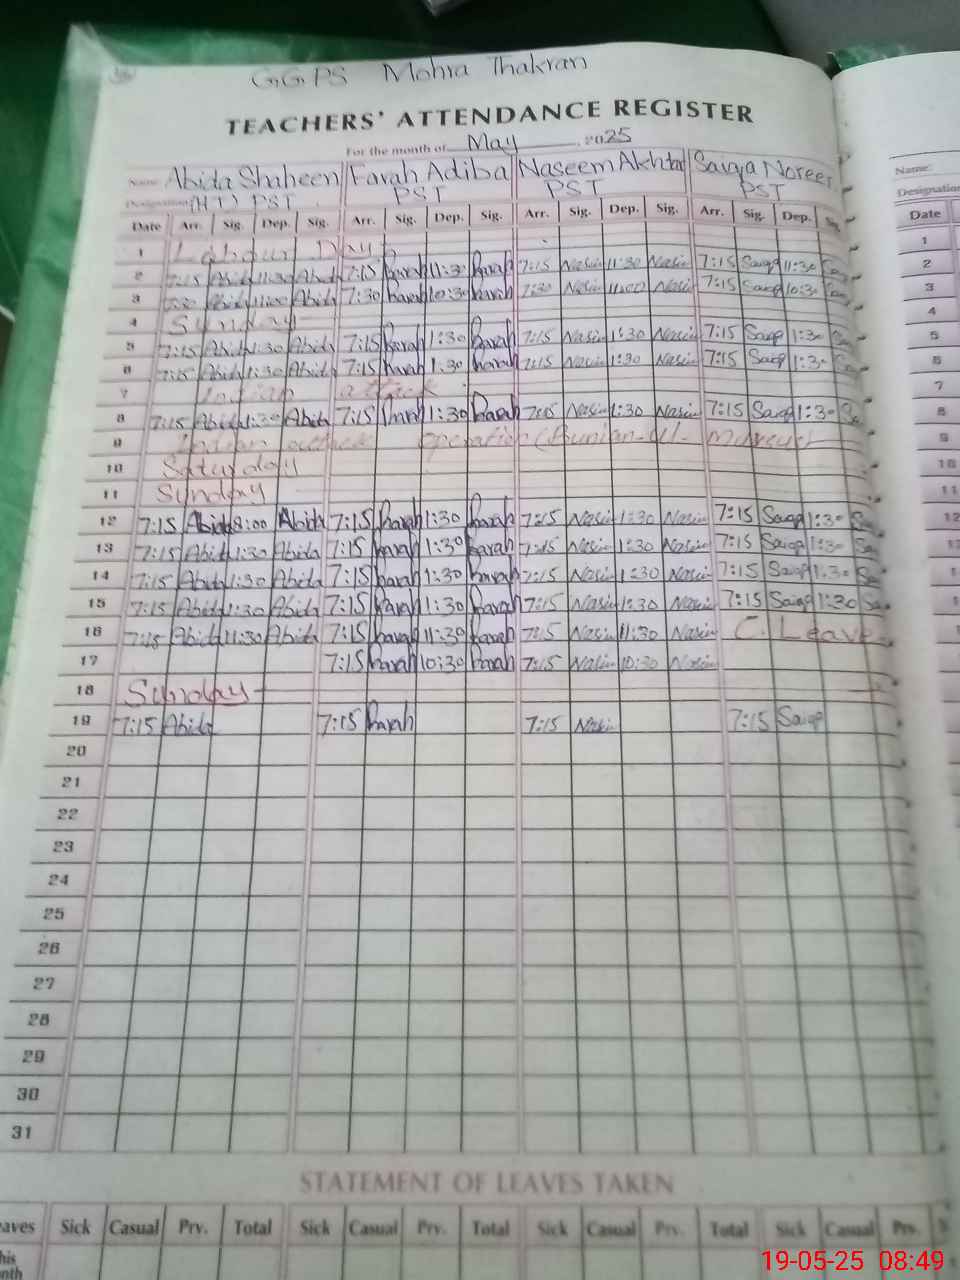 GGPS Mohra Thakran
TEACHERS' ATTENDANCE REGISTER
For the month of May, 2025
Name Abida Shaheen Farah Adiba Naseem Akhtar Saiqa Noreen
Name:
Designation (HT) PST PST PST PST
Designation
Date Arr. Sig. Dep. Sig. Arr. Sig. Dep. Sig. Arr. Sig. Dep. Sig. Arr. Sig. Dep. Sig. Date
1 Labour Day 1
2 7:15 Abida 11:30 Abida 7:15 Farah 11:30 Farah 7:15 Nasim 11:30 Nasim 7:15 Saiqa 11:30 2
3 7:30 Abida 11:00 Abida 7:30 Farah 10:30 Farah 7:30 Nasim 11:00 Nasim 7:15 Saiqa 10:30 3
4 Sunday 4
5 7:15 Abida 1:30 Abida 7:15 Farah 1:30 Farah 7:15 Nasim 1:30 Nasim 7:15 Saiqa 1:30 5
6 7:15 Abida 1:30 Abida 7:15 Farah 1:30 Farah 7:15 Nasim 1:30 Nasim 7:15 Saiqa 1:30 6
7 Indian attack 7
8 7:15 Abida 1:30 Abida 7:15 Farah 1:30 Farah 7:15 Nasim 1:30 Nasim 7:15 Saiqa 1:30 8
9 Indian attack operation (Bunian-ul- 9
10 Saturday 10
11 Sunday 11
12 7:15 Abida 8:00 Abida 7:15 Farah 1:30 Farah 7:15 Nasim 1:30 Nasim 7:15 Saiqa 1:30 12
13 7:15 Abida 1:30 Abida 7:15 Farah 1:30 Farah 7:15 Nasim 1:30 Nasim 7:15 Saiqa 1:30
14 7:15 Abida 1:30 Abida 7:15 Farah 1:30 Farah 7:15 Nasim 1:30 Nasim 7:15 Saiqa 1:30
15 7:15 Abida 1:30 Abida 7:15 Farah 1:30 Farah 7:15 Nasim 1:30 Nasim 7:15 Saiqa 1:30
16 7:15 Abida 11:30 Abida 7:15 Farah 11:30 Farah 7:15 Nasim 11:30 Nasim C. Leave
17 7:15 Farah 10:30 Farah 7:15 Nasim 10:30 Nasim
18 Sunday
19 7:15 Abida 7:15 Farah 7:15 Nasim 7:15 Saiqa
20
21
22
23
24
25
26
27
28
29
30
31
STATEMENT OF LEAVES TAKEN
eaves Sick Casual Prv. Total Sick Casual Prv. Total Sick Casual Prv. Total Sick Casual Prv.
his
nth
19-05-25 08:49